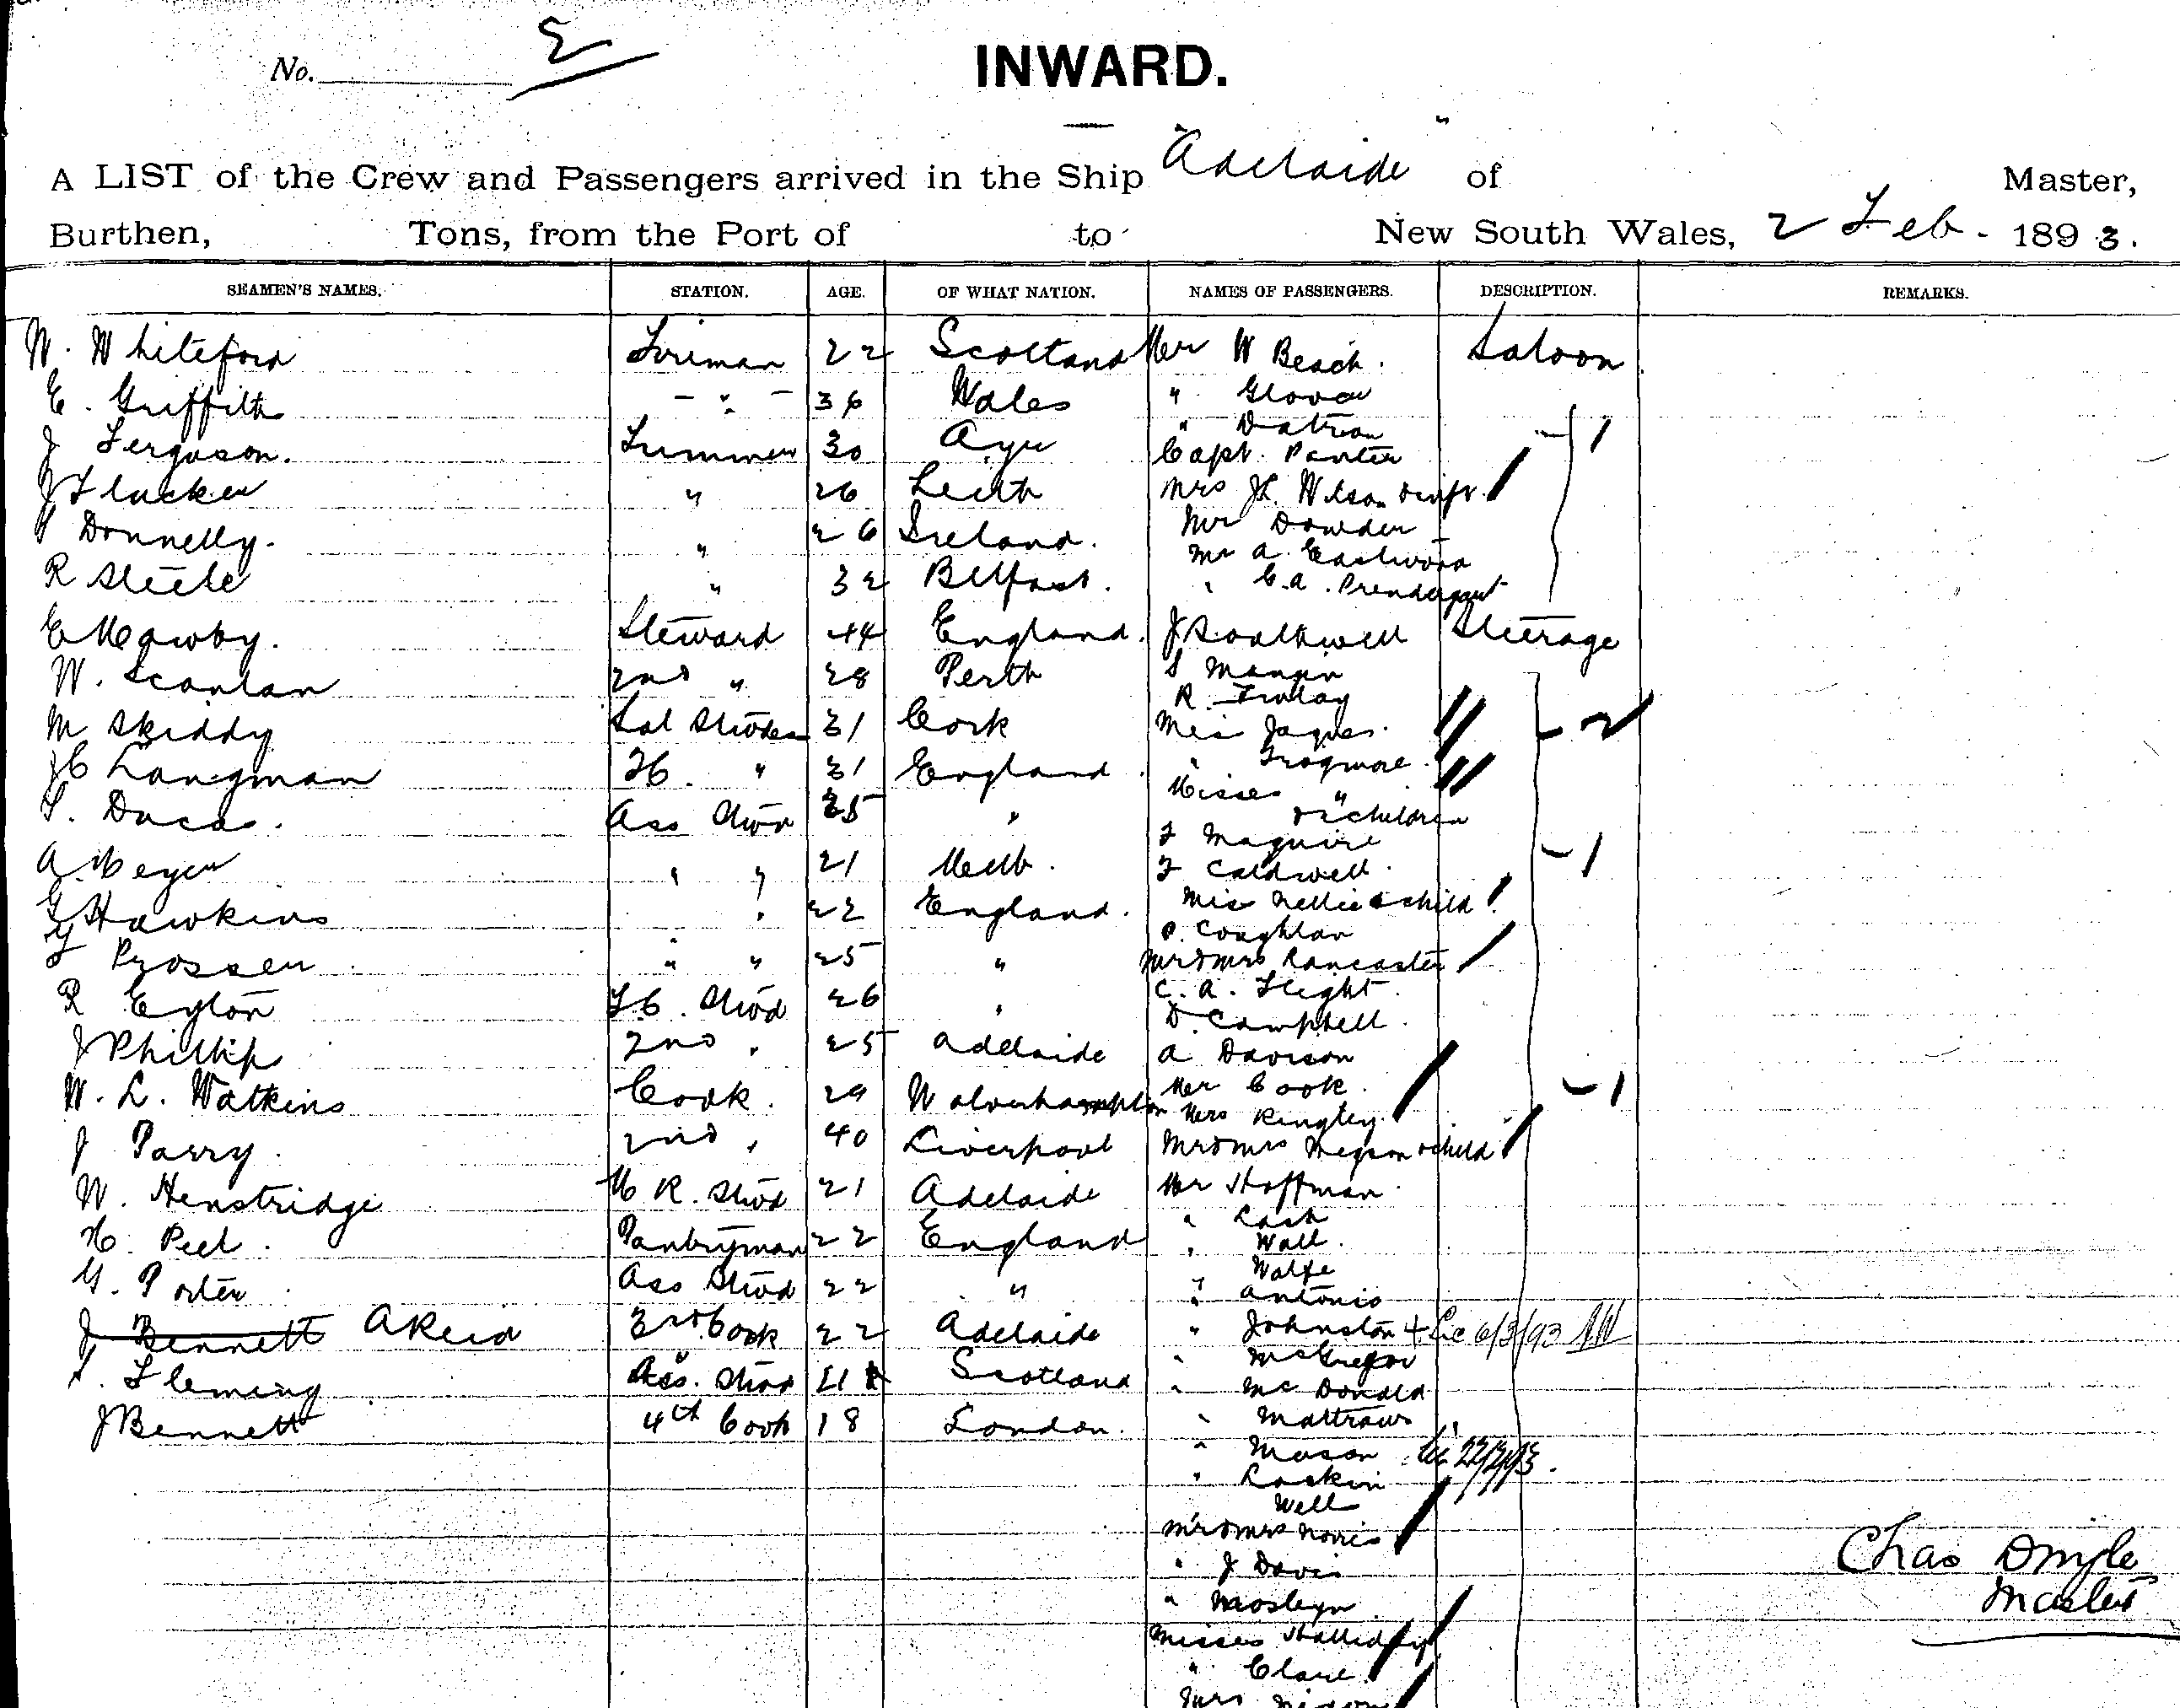 No.
INWARD.
A LIST of the Crew and Passengers arrived in the Ship "Adelaide" of Master,
Burthen, Tons, from the Port of to New South Wales, 2 Feb. 1893.
SEAMEN'S NAMES. STATION. AGE. OF WHAT NATION. NAMES OF PASSENGERS. DESCRIPTION. REMARKS.
W. Whiteford Fireman 22 Scotland Mr W Beach. Saloon
E. Griffith - " - 36 Wales " Glover
J Ferguson. Trimmer 30 Ayr "
Capt. Panter
" 26 Leith Mrs Jh. Wilson
Donnelly. " 26 Ireland. Mr Dowder
Mr A. Eastwood
R Steele " 32 Belfast. " C.A. Prendergast
E Mawby. Steward 44 England. J Southwell Steerage
W. Scanlan 2nd " 28 Perth S Mangin
R. Finlay
M Skiddy Sal Stwdess 31 Cork Miss Jaques.
Langman " 31 England. " Frogmore
Ass Stwd 25 " Misses "
& 2 children
F Maguire
A. Meyer " " 21 Melb. F Caldwell.
Hawkins " 22 England. Mrs Nellie & child
P. Coughlan
F Prosser " " 25 " Mr & Mrs Lancaster
R Eyton F.C. Stwd 26 " C. A. Flight.
D. Campbell.
J Phillip 2nd " 25 Adelaide A Davison
W. L. Watkins Cook. 29 Wolverhampton Mr Cook.
Mrs Kingley.
J Parry. 2nd " 40 Liverpool Mr & Mrs Megson & child
W. Henstridge M. R. Stwd 21 Adelaide Mr Hoffman.
" Cash
H. Peel. Pantryman 22 England " Wall.
Wolfe
G. Porter Ass Stwd 22 " " Antonio
J Bennett A Reid 3rd Cook 22 Adelaide " Johnston + Lic 6/3/93
" McGregor
Fleming Ass. Stwd 21 Scotland " McDonald
J Bennett 4th Cook 18 London. " Mattraws
" Mason
" Laskin
Well
Mr & Mrs Norris
" J Davis
" Mosleyn
Misses Halliday
" Clare
Mrs
Chas Dingle
Master